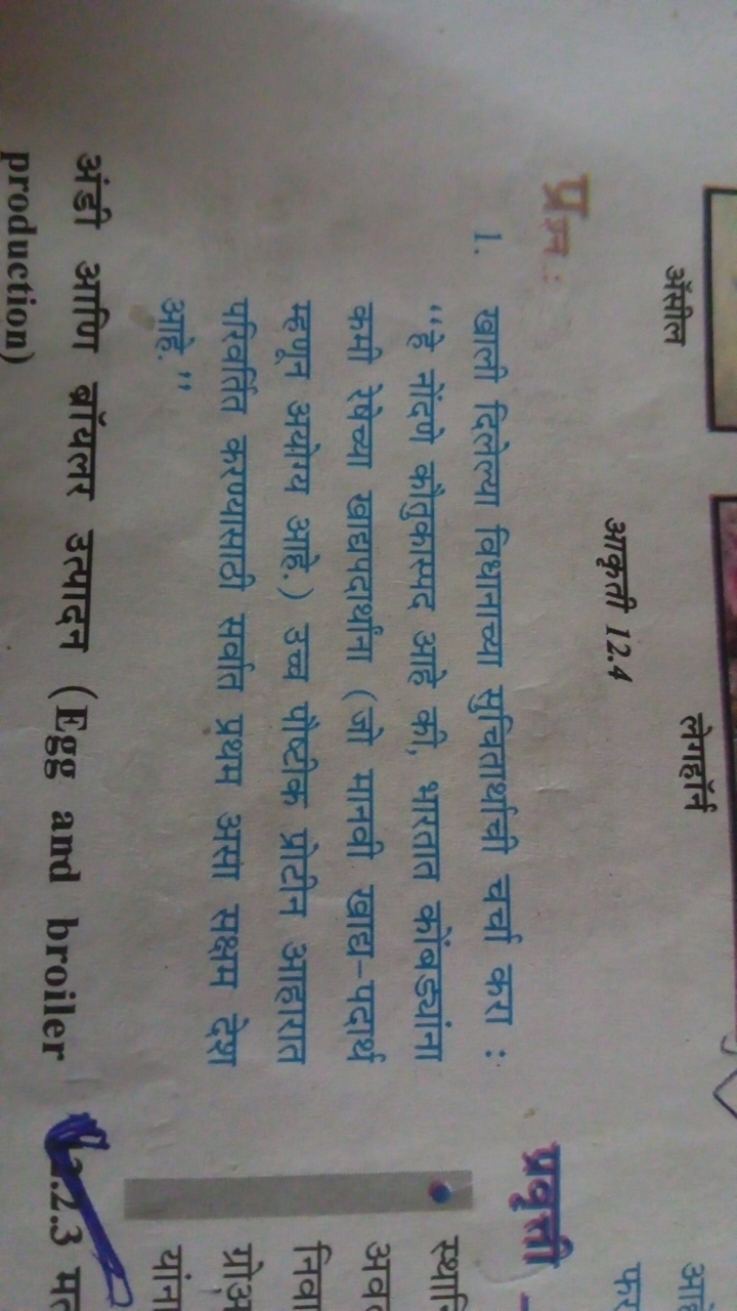 अ‍ॅसील
लेगहॉर्न
आकृती 12.4
प्रश्न :
1. खाली दिलेल्या विधानाच्या सुचितार्थाची चर्चा करा :
“हे नोंदणे कौतुकास्पद आहे की, भारतात कोंबड्यांना
कमी रेषेच्या खाद्यपदार्थांना (जो मानवी खाद्य-पदार्थ
म्हणून अयोग्य आहे.) उच्च पौष्टीक प्रोटीन आहारात
परिवर्तित करण्यासाठी सर्वात प्रथम असा सक्षम देश
आहे.”
अंडी आणि ब्रॉयलर उत्पादन (Egg and broiler
production)
प्रवृत्ती